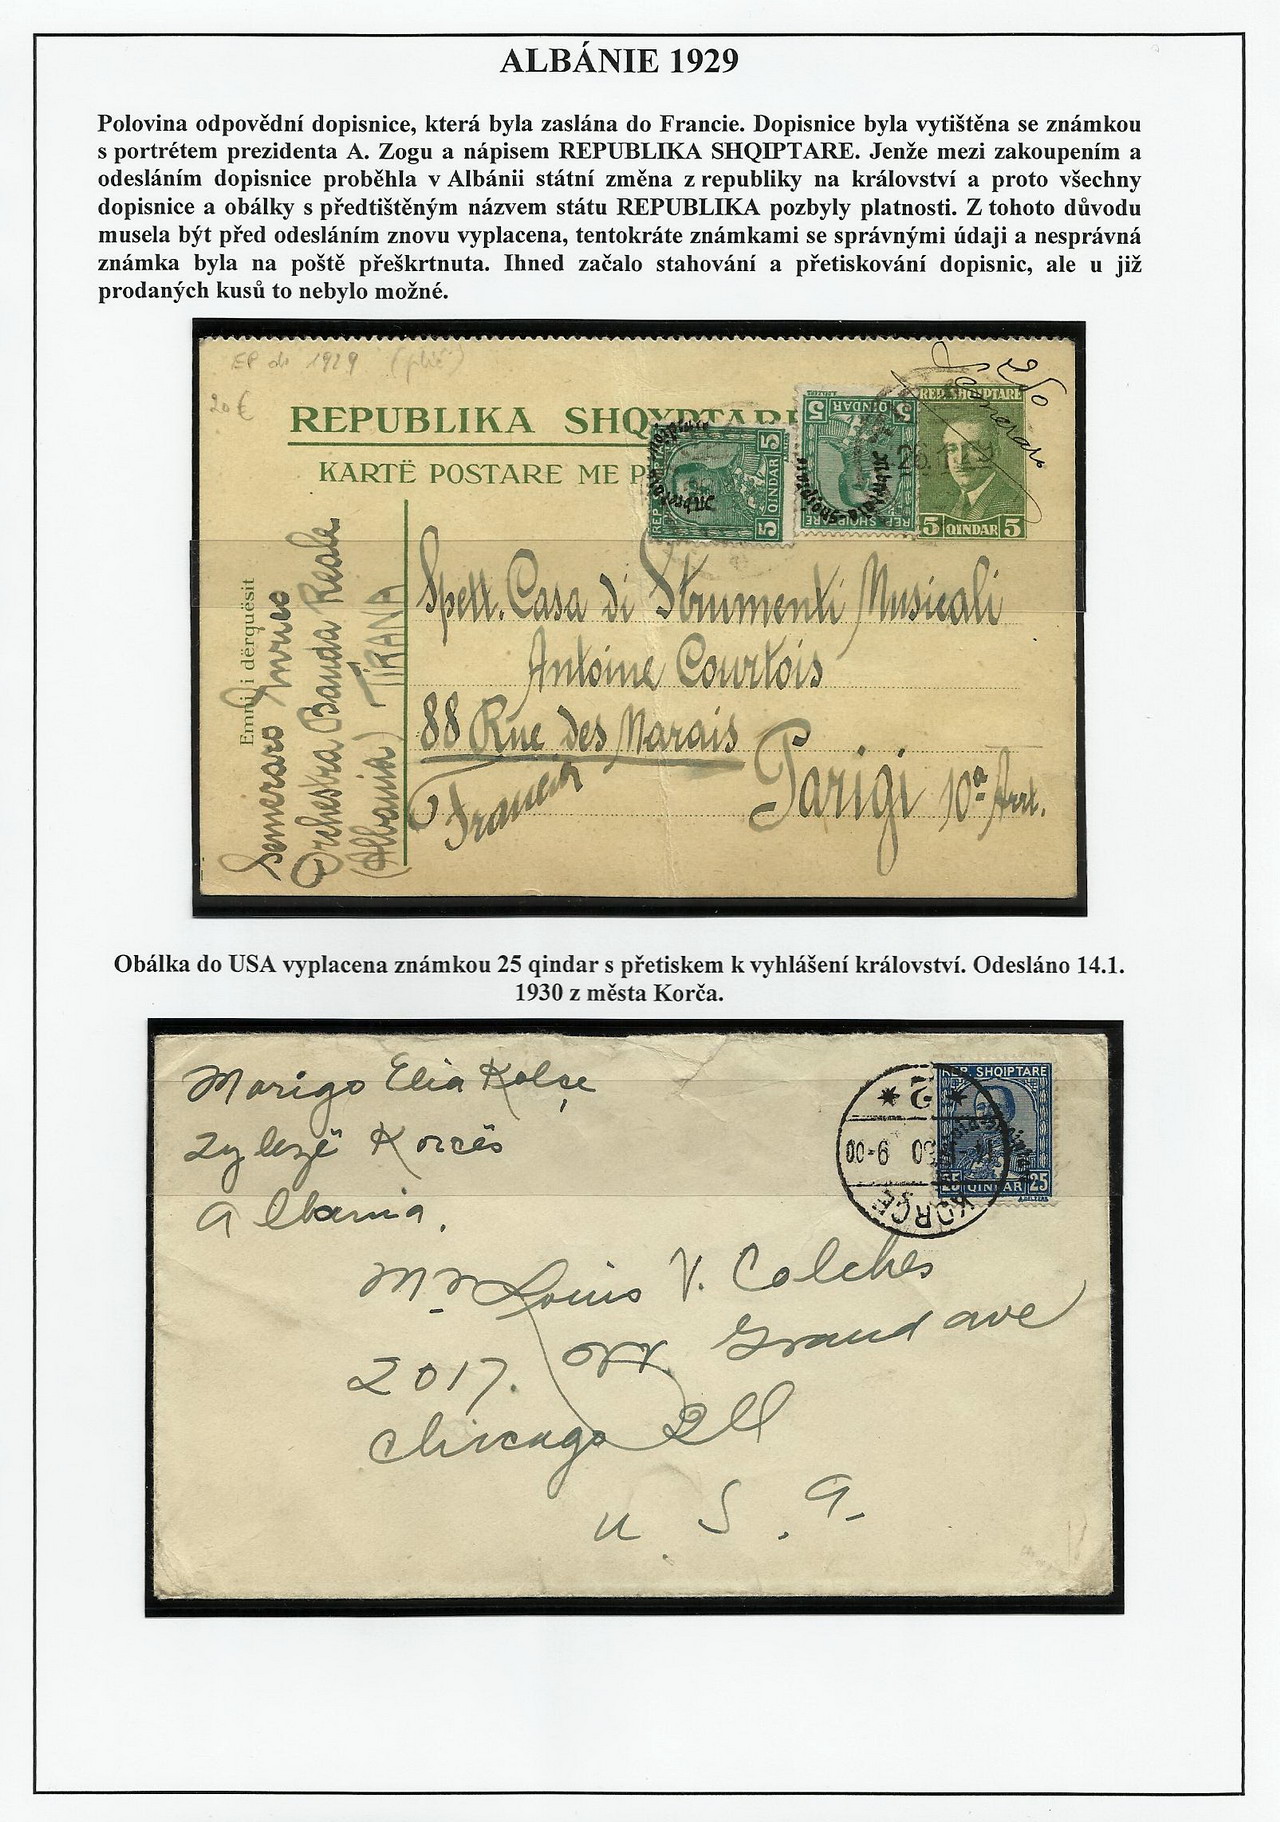 ALBÁNIE 1929
Polovina odpovědní dopisnice, která byla zaslána do Francie. Dopisnice byla vytištěna se známkou
s portrétem prezidenta A. Zogu a nápisem REPUBLIKA SHQIPTARE. Jenže mezi zakoupením a
odesláním dopisnice proběhla v Albánii státní změna z republiky na království a proto všechny
dopisnice a obálky s předtištěným názvem státu REPUBLIKA pozbyly platnosti. Z tohoto důvodu
musela být před odesláním znovu vyplacena, tentokráte známkami se správnými údaji a nesprávná
známka byla na poště přeškrtnuta. Ihned začalo stahování a přetiskování dopisnic, ale u již
prodaných kusů to nebylo možné.
EP de 1929
20 €
REPUBLIKA SHQYPTAR
KARTË POSTARE ME P
REP. SHQIPTARE
5 QINDAR 5
5 QINDAR 5
REP. SHQIPTARE
5 QINDAR 5
Emni i dërguësit
Semeraro Enrico
Orchestra Banda Reale
(Albania) TIRANA
Spett. Casa di Strumenti Musicali
Antoine Courtois
88 Rue des Marais
Parigi 10ª Arrt.
Francia
Obálka do USA vyplacena známkou 25 qindar s přetiskem k vyhlášení království. Odesláno 14.1.
1930 z města Korča.
Marigo Elia Kolçe
Zylezë Korcës
Albania.
REP. SHQIPTARE
25 QINDAR 25
KORÇE
Mr Louis V. Colches
2017. W. Grand ave
Chicago Ill
U. S. A.